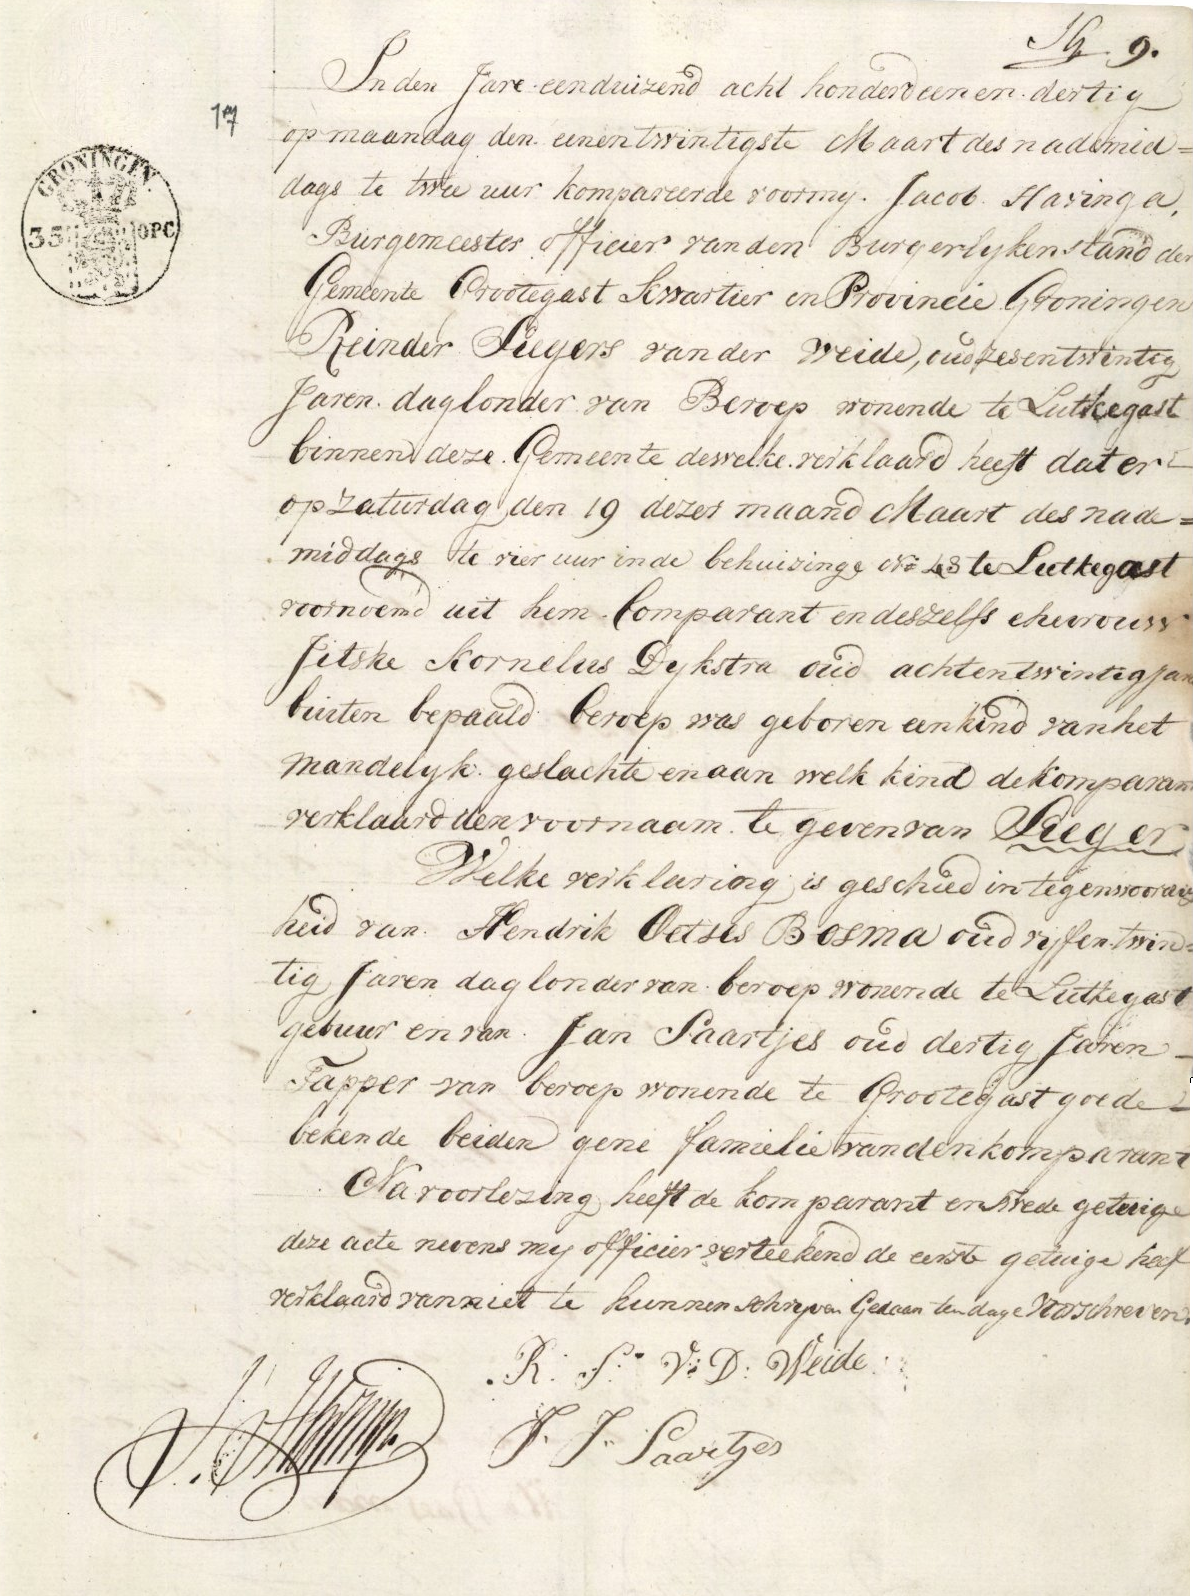 9.
In den Jare eenduizend acht honderd een en dertig
17
op maandag den eenentwintigste Maart des nademid=
GRONINGEN.
35 OPC
dags te twee uur kompareerde voor my. Jacob Havinga,
Burgemeester officier van den Burgerlyken stand der
Gemeente Grootegast Kwartier en Provincie Groningen
Reinder Siegers van der Weide, oud zesentwintig
Jaren daglonder van Beroep wonende te Lutkegast
binnen deze Gemeente dewelke verklaard heeft dat er
op Zaturdag den 19 dezer maand Maart des nade=
middags te vier uur in de behuizinge No te Lutkegast
voornoemd uit hem Comparant en deszelfs ehevrouw
Jitske Kornelus Dykstra oud achtentwintig jare
buiten bepaald beroep was geboren een kind van het
mandelyk geslachte en aan welk kind de Komparan
verklaard den voornaam te geven van Sieger
Welke verklaring is geschied in tegenwoordig
heid van Hendrik Oetses Bosma oud vyfentwin=
tig Jaren daglonder van beroep wonende te Lutkegast
gebuur en van Jan Saartjes oud dertig Jaren
Tapper van beroep wonende te Grootegast goede
bekende beiden gene famielie van den komparant
Na voorlezing heeft de komparant en twede getuige
deze acte nevens my officier verteekend de eerste getuige heef
verklaard van niet te kunnen schryven Gedaan ten dage Voorschreven.
R: S: V: D: Weide
J. J. Saartjes